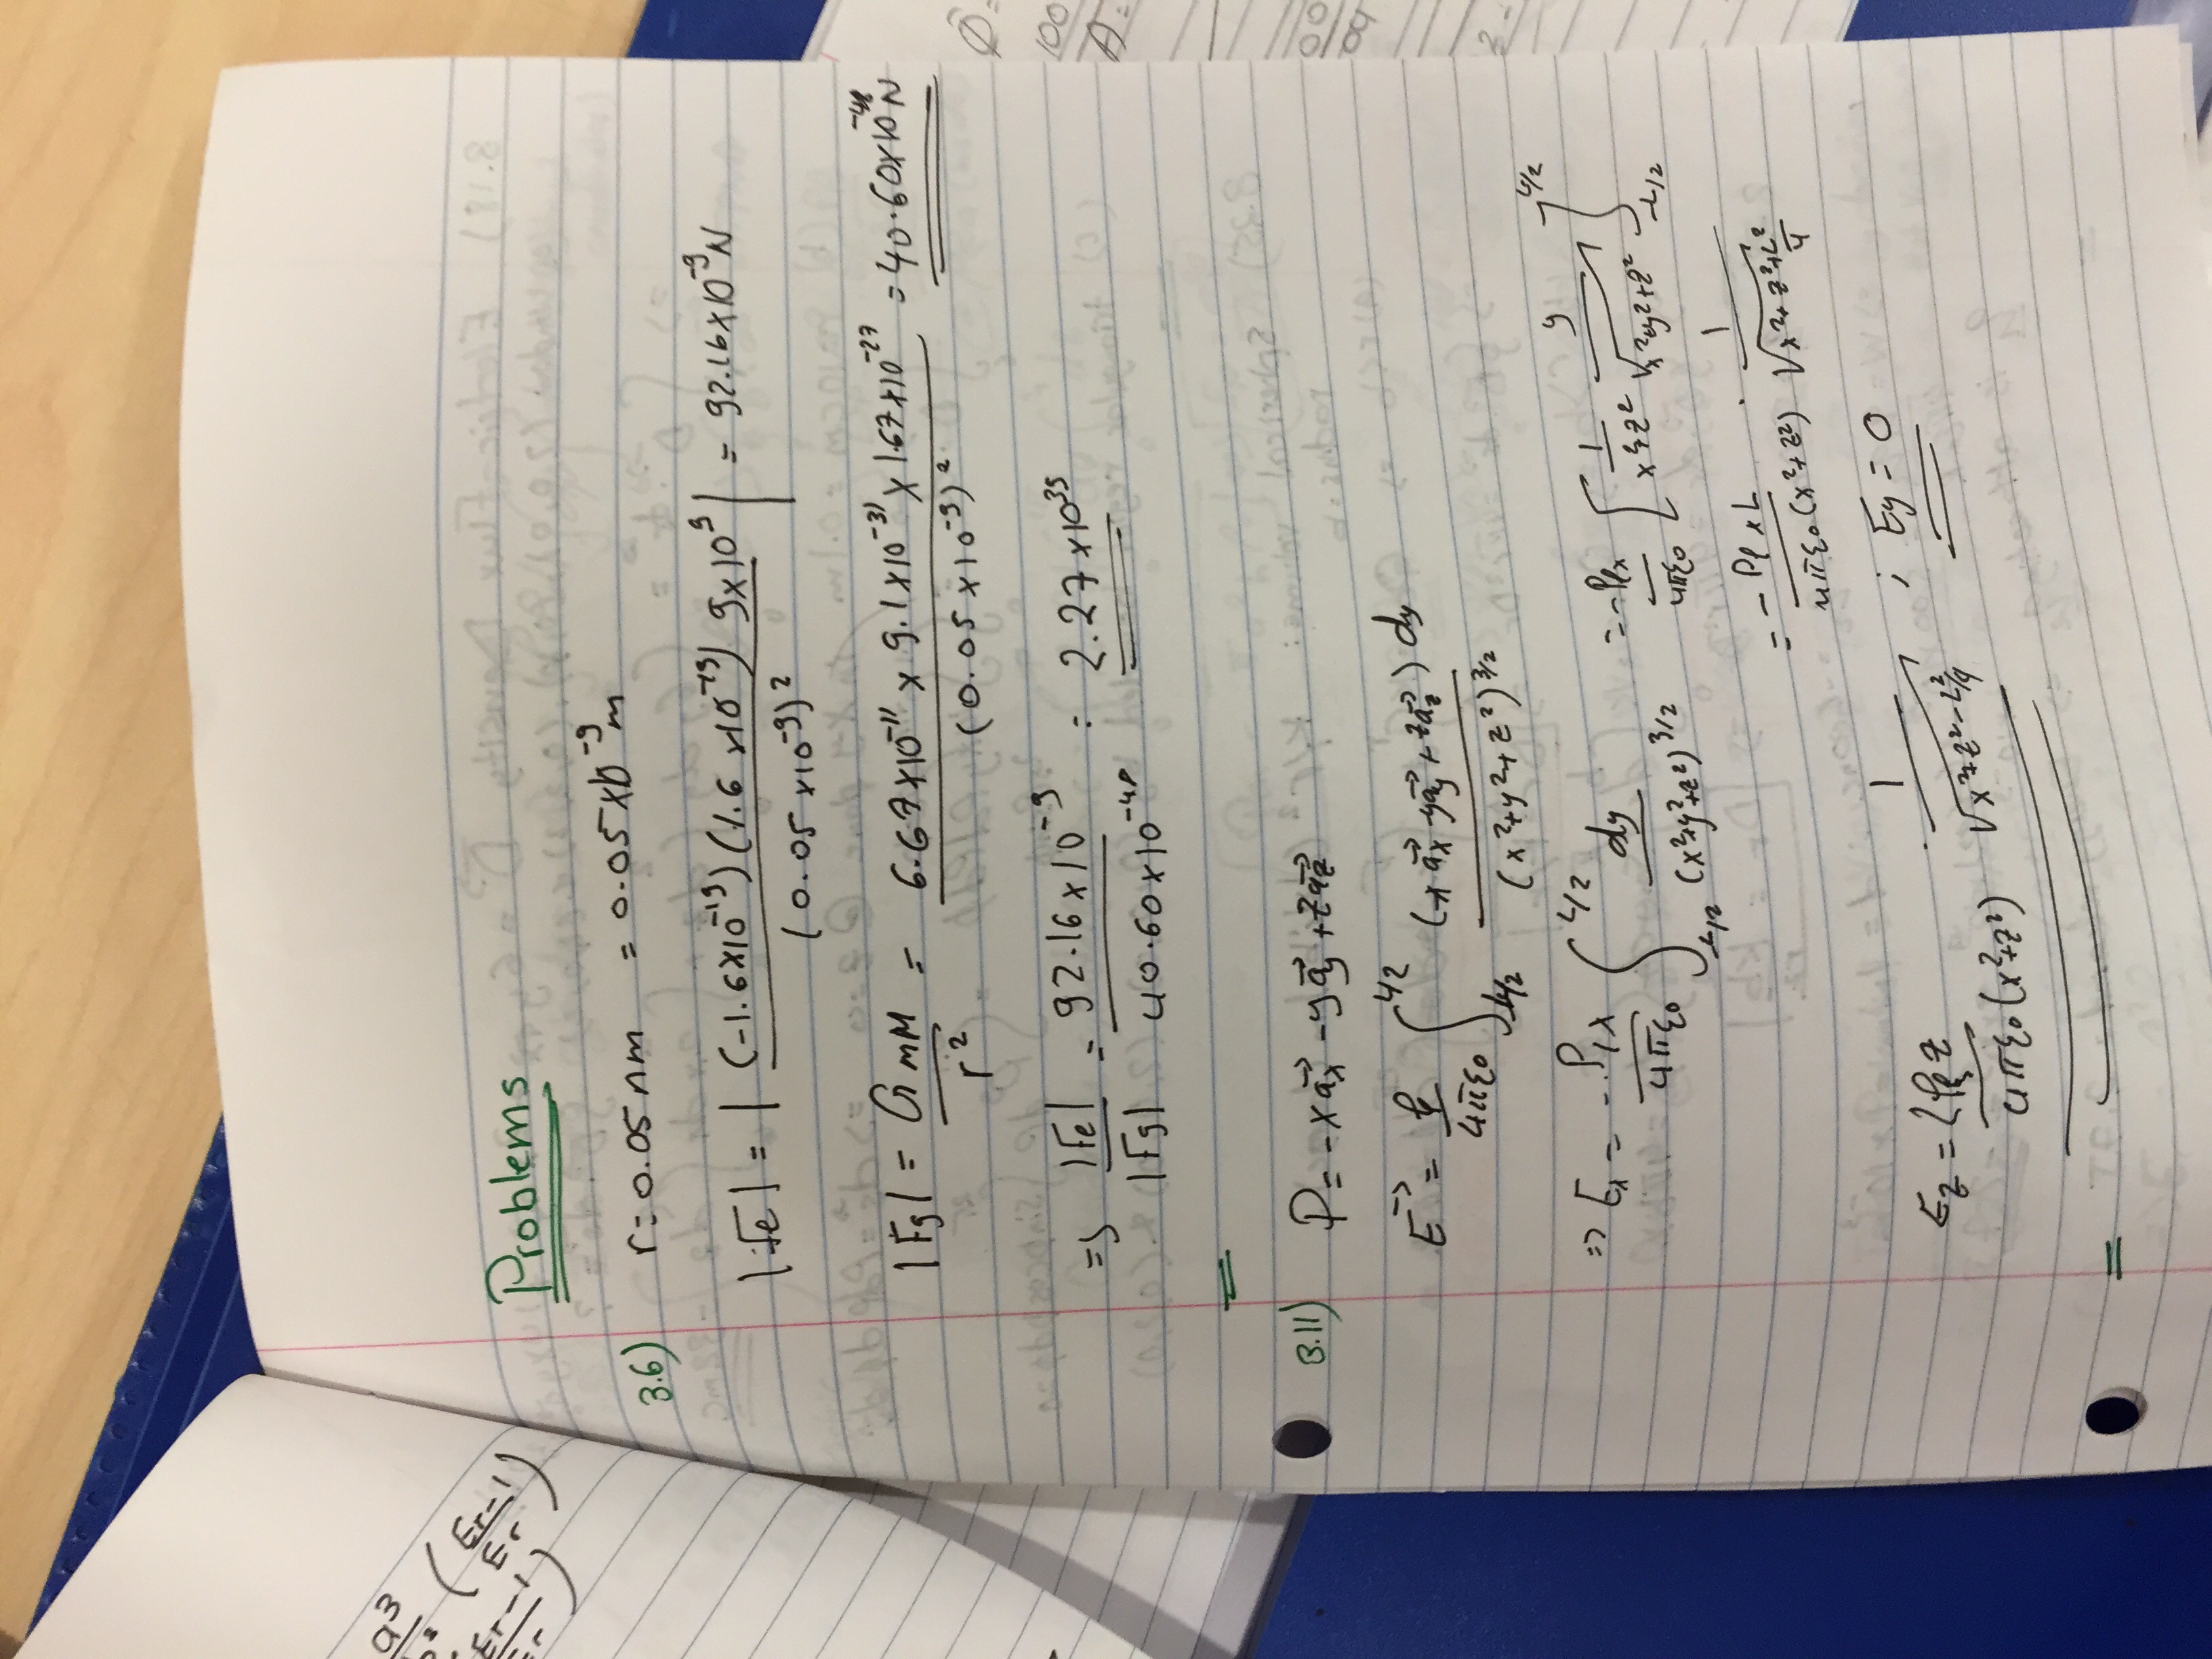 Problems
3.6) r = 0.05 nm = 0.05 x 10⁻⁹ m
|Fe| = | (-1.6x10⁻¹⁹)(1.6 x10⁻¹⁹) 9x10⁹ / (0.05 x10⁻⁹)² | = 92.16x10⁻⁹ N
|Fg| = G mM / r² = 6.67x10⁻¹¹ x 9.1x10⁻³¹ x 1.67x10⁻²⁷ / (0.05 x10⁻⁹)² = 40.60x10⁻⁴⁸ N
=> |Fe| / |Fg| = 92.16 x 10⁻⁹ / 40.60 x 10⁻⁴⁸ = 2.27 x 10³⁹
3.11) P = -x a⃗x - y a⃗y + z a⃗z
E⃗ = ρ / 4πε0 ∫ L/2 -L/2 (-x a⃗x - y a⃗y + z a⃗z) dy / (x²+y²+z²)^3/2
=> Ex = - ρl x / 4πε0 ∫ L/2 -L/2 dy / (x²+y²+z²)^3/2 = -ρl x / 4πε0 [ 1 / x²+z² y / √x²+y²+z² ] L/2 -L/2
= - ρl x L / 4πε0 (x²+z²) · 1 / √x²+z²+L²/4
Ez = Lρl z / 4πε0 (x²+z²) · 1 / √x²+z²-L²/4 ; Ey = 0
a³
(Er-1 / Er)
Er-1
Q =
100
A =